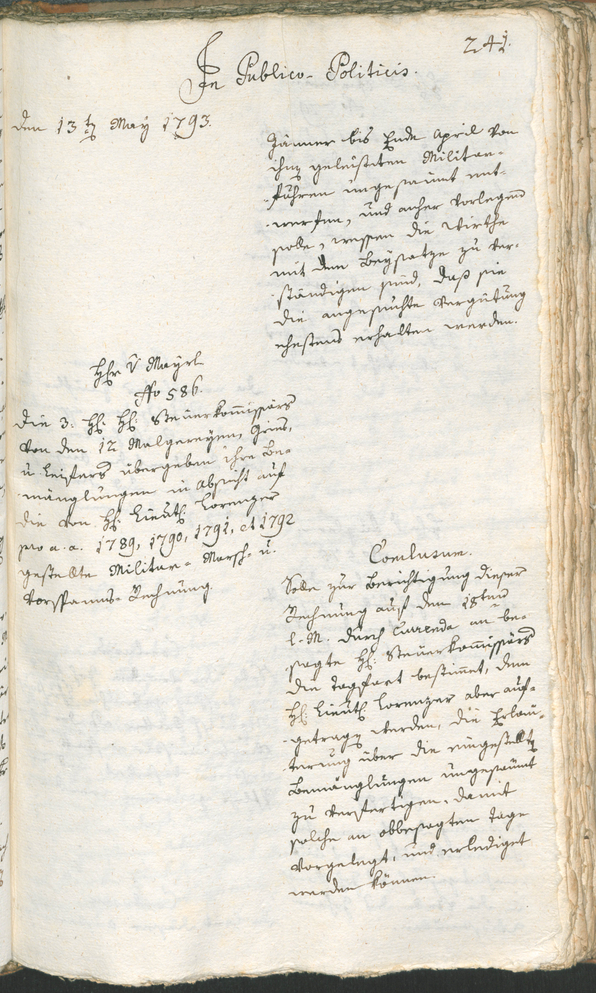 241.
In Publico-Politicis.
den 13t May 1793.
Jänner bis Ende April von
ihm geleisteten Militar-
fuhren ungesaumt ent-
werfen, und anher vorlegen
solle, wessen die Wirthe
mit dem Beysatze zu ver-
ständigen sind, daß sie
die angesuchte Vergütung
ehestens erhalten werden.
Hr. v Mayrl
No 586.
Die 3. H. H. Steuerkommissärs
von den 12 Malgereyen, Gries,
u. Leifers übergeben ihre Be-
mänglungen in Absicht auf
die von H. Lieut. Lorenzer
pro a. a. 1789, 1790, 1791, et 1792
gestellte Militar- Marsch- u.
Vorspanns-Rechnung.
Conclusum.
Solle zur Berichtigung dieser
Rechnung auf den 18ten
l. M. durch Currenda an be-
sagte H. Steuerkommissärs
die Tagsfart bestimmt, dem
H. Lieut. Lorenzer aber auf-
getragen werden, die Erläu-
terung über die eingestellten
Bemänglungen ungesaumt
zu verfertigen, damit
solche an obbesagtem Tage
vorgelegt, und erlediget
werden können.